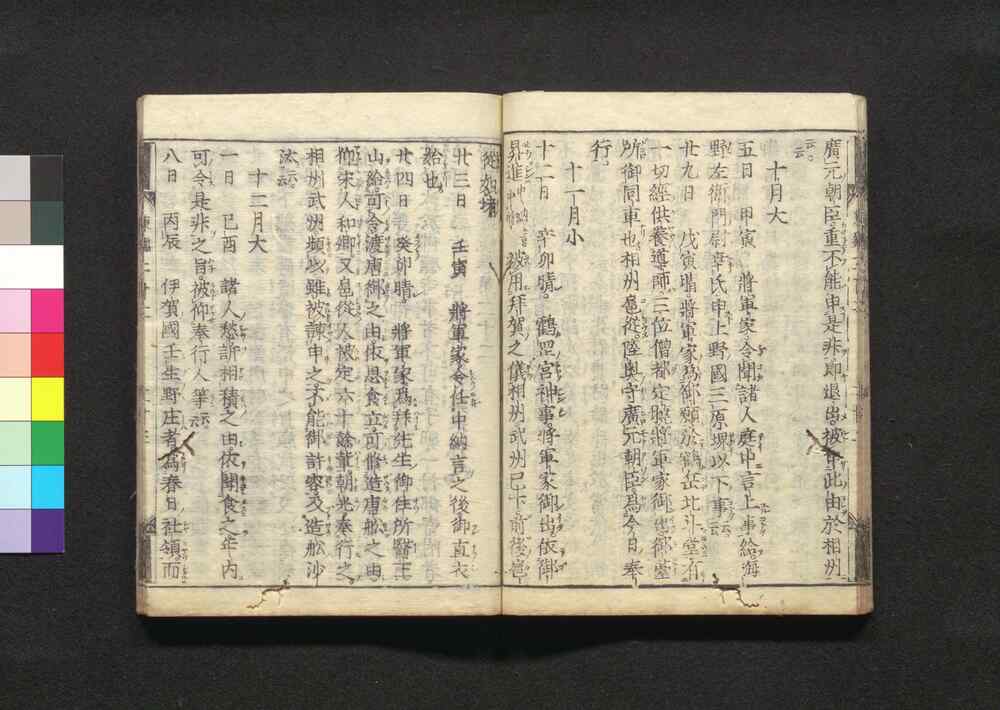 廣元朝臣重不能申是非即退出被 此由於相州
云云
十月大
五日 甲寅 將軍家令聞諸人庭中言上事給海
野左衛門尉幸氏申上野國三原堺以下事云云
廿九日 戊寅晴將軍家爲御願於鶴岳北斗堂有
一切經供養導師三位僧都定曉將軍家御出御臺
所御同車也相州扈從陸奥守廣元朝臣爲今日奉
行
十一月小
十二日 辛卯晴鶴岡宮神事將軍家御出依御
昇進中納言被用拜賀之儀相州武州已下前後扈
從如堵
廿三日 壬寅 將軍家令任中納言之後御直衣
始也
廿四日 癸卯晴 將軍家爲拜先生御住所醫王
山給可令渡唐御之由依思食立可修造唐舩之由
仰宋人和卿又扈從人被定六十餘輩朝光奉行之
相州武州頻以雖被諫申之不能御許容及造舩沙
汰云云
十二月大
一日 己酉 諸人愁訴相積之由依聞食之年内
可令是非之旨被仰奉行人等云云
八日 丙辰 伊賀國壬生野庄者爲春日社領而